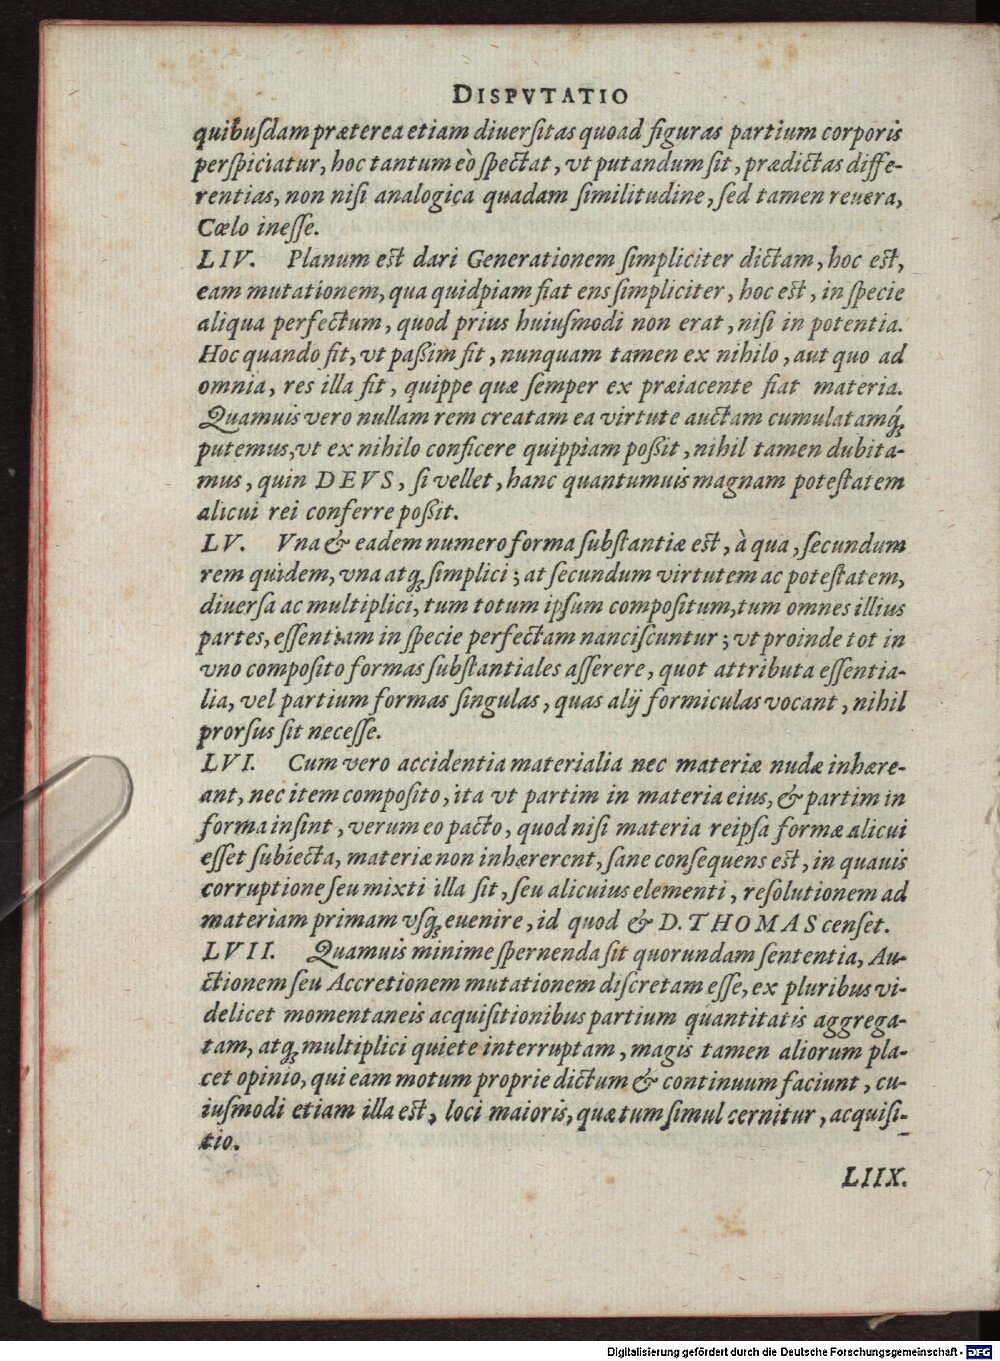 DISPVTATIO
quibuſdam præterea etiam diuerſitas quoad figuras partium corporis
perſpiciatur, hoc tantum eò ſpectat, vt putandum ſit, prædictas diffe-
rentias, non niſi analogica quadam ſimilitudine, ſed tamen reuera,
Cœlo ineſſe.
LIV. Planum est dari Generationem ſimpliciter dictam, hoc est,
eam mutationem, qua quidpiam fiat ens ſimpliciter, hoc est, in ſpecie
aliqua perfectum, quod prius huiuſmodi non erat, niſi in potentia.
Hoc quando fit, vt paßim fit, nunquam tamen ex nihilo, aut quo ad
omnia, res illa fit, quippe quæ ſemper ex præiacente fiat materia.
Quamuis vero nullam rem creatam ea virtute auctam cumulatamq́;
putemus, vt ex nihilo conficere quippiam poßit, nihil tamen dubita-
mus, quin DEVS, ſi vellet, hanc quantumuis magnam poteſtatem
alicui rei conferre poßit.
LV. Vna & eadem numero forma ſubſtantiæ est, à qua, ſecundum
rem quidem, vna atq; ſimplici; at ſecundum virtutem ac poteſtatem,
diuerſa ac multiplici, tum totum ipſum compoſitum, tum omnes illius
partes, eſſentiam in ſpecie perfectam nanciſcuntur; vt proinde tot in
vno compoſito formas ſubſtantiales aſſerere, quot attributa eſſentia-
lia, vel partium formas ſingulas, quas alij formiculas vocant, nihil
prorſus ſit neceſſe.
LVI. Cum vero accidentia materialia nec materiæ nudæ inhære-
ant, nec item compoſito, ita vt partim in materia eius, & partim in
forma inſint, verum eo pacto, quod niſi materia reipſa formæ alicui
eſſet ſubiecta, materiæ non inhærerent, ſane conſequens est, in quauis
corruptione ſeu mixti illa ſit, ſeu alicuius elementi, reſolutionem ad
materiam primam vſq; euenire, id quod & D. THOMAS cenſet.
LVII. Quamuis minime ſpernenda ſit quorundam ſententia, Au-
ctionem ſeu Accretionem mutationem diſcretam eſſe, ex pluribus vi-
delicet momentaneis acquiſitionibus partium quantitatis aggrega-
tam, atq; multiplici quiete interruptam, magis tamen aliorum pla-
cet opinio, qui eam motum proprie dictum & continuum faciunt, cu-
iuſmodi etiam illa est, loci maioris, quæ tum ſimul cernitur, acquiſi-
tio.
LIIX.
Digitalisierung gefördert durch die Deutsche Forschungsgemeinschaft - DFG